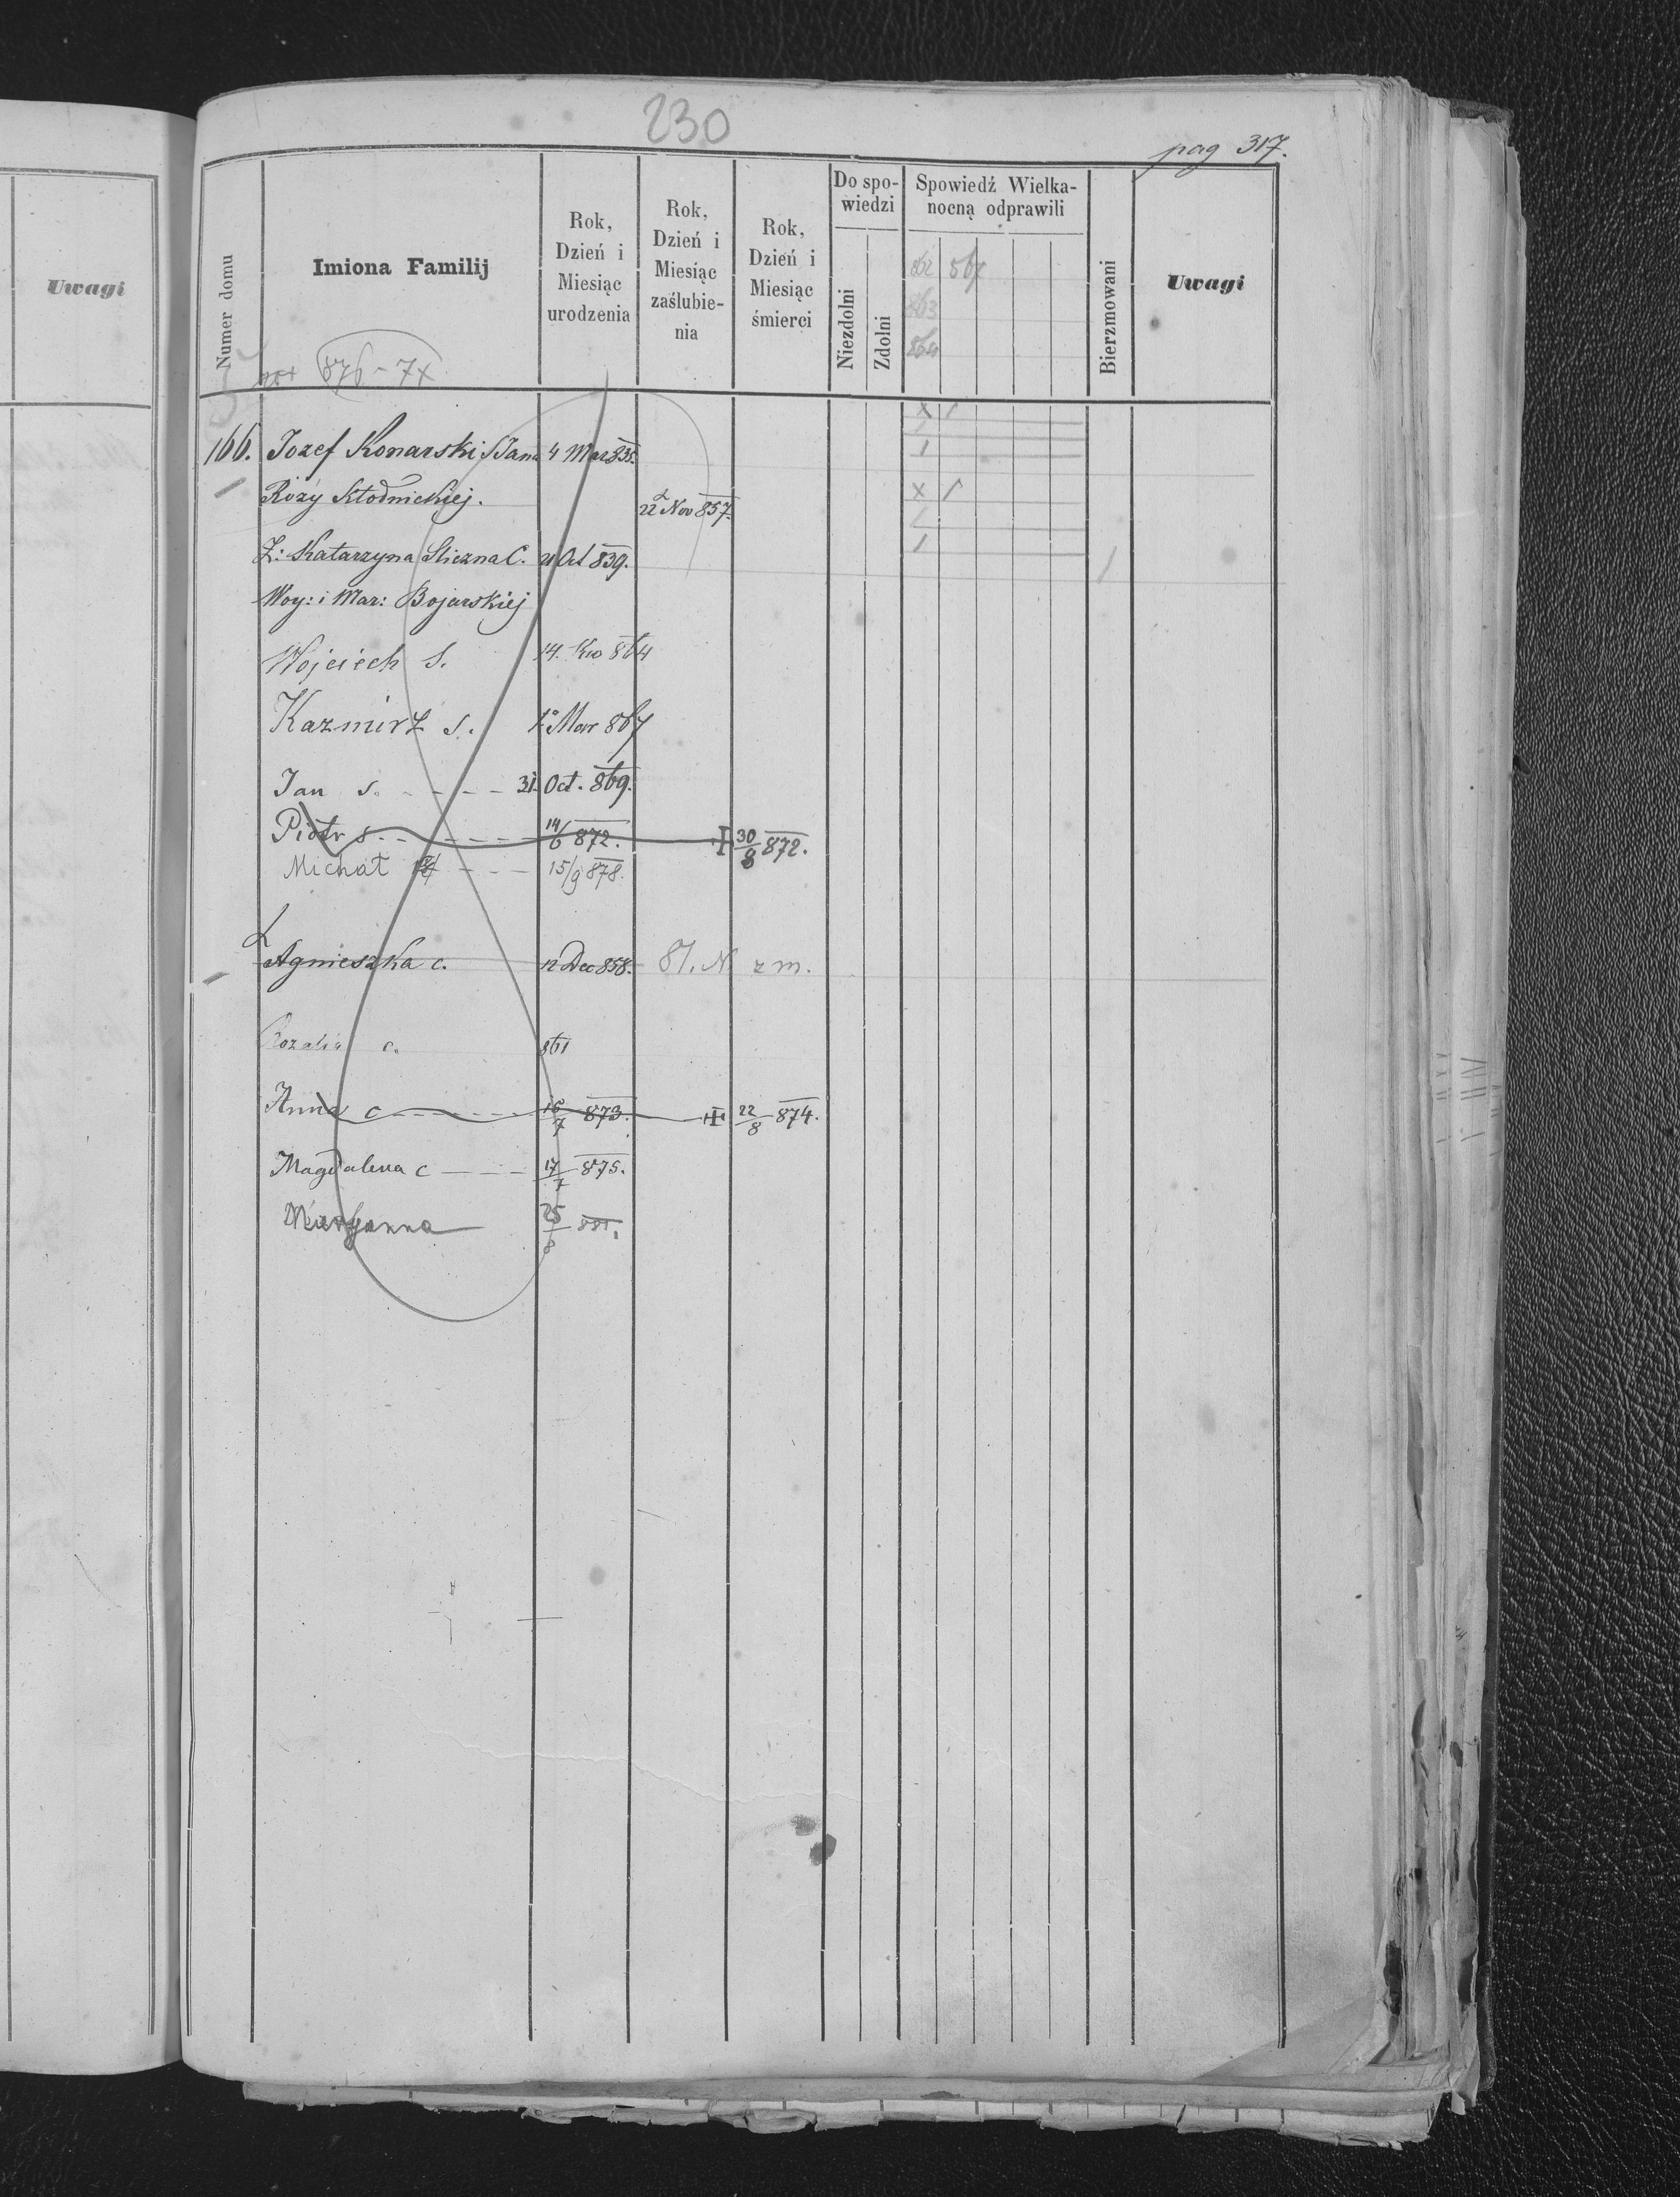 230
pag 317.
Uwagi
Numer domu
Imiona Familij
Rok, Dzień i Miesiąc urodzenia
Rok, Dzień i Miesiąc zaślubie- nia
Rok, Dzień i Miesiąc śmierci
Do spo- wiedzi
Niezdolni
Zdolni
Spowiedź Wielka- nocną odprawili
862 567
863
864
Bierzmowani
Uwagi
876 - 7x
166. Jozef Konarski S Jana 4 Mar 835.
Rozy Kłodnickiej. 22 Nov 857.
Ż: Katarzyna Sliczna C. 21 Oct 839.
Woy: i Mar: Bojarskiej
Wojciech S. 14. Kw 864
Kazmirz s. 1º Mar 867
Jan s. - - - - 31 Oct. 869.
Piotr s. - - - - 14/6 872. 30/8 872.
Michał - - - 15/9 878.
Agnieszka c. 12 Dec 858. 81. N z m.
Rozalia c. 861
Anna c - - - - 16/7 873. 22/8 874.
Magdalena c - - - 17/7 875.
Maryanna 25/8 881.